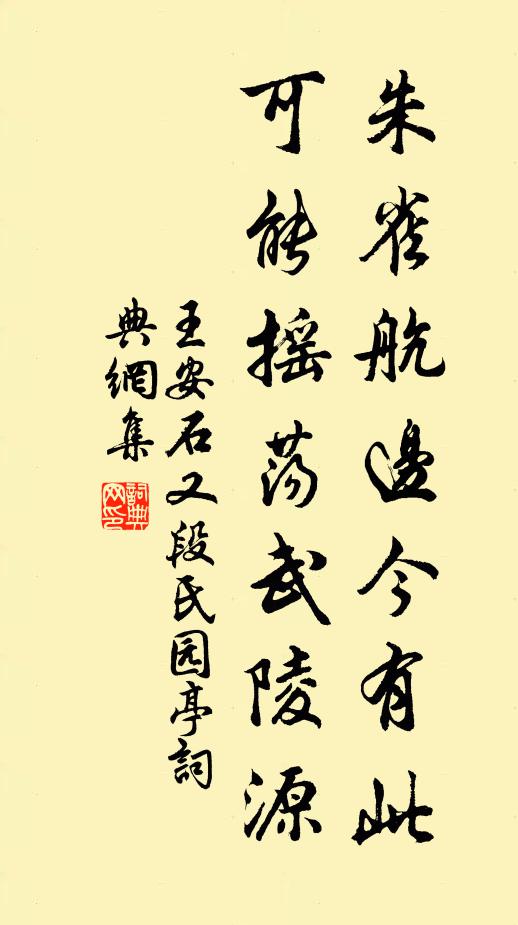 朱雀航邊今有此
可能摇荡武陵源
王安石又段氏园亭詞
典網集
詞典網印